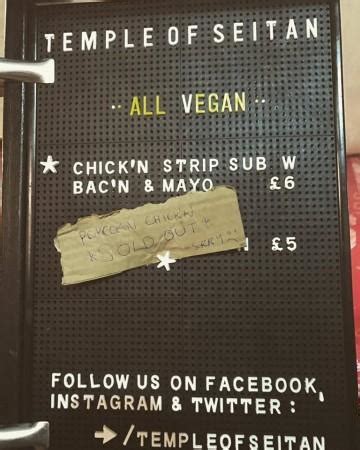 TEMPLE OF SEITAN
·· ALL VEGAN ··
CHICK'N STRIP SUB W
BAC'N & MAYO £6
POPCORN CHICKN
SOLD OUT
SRRY
N £5
FOLLOW US ON FACEBOOK,
INSTAGRAM & TWITTER :
/TEMPLEOFSEITAN